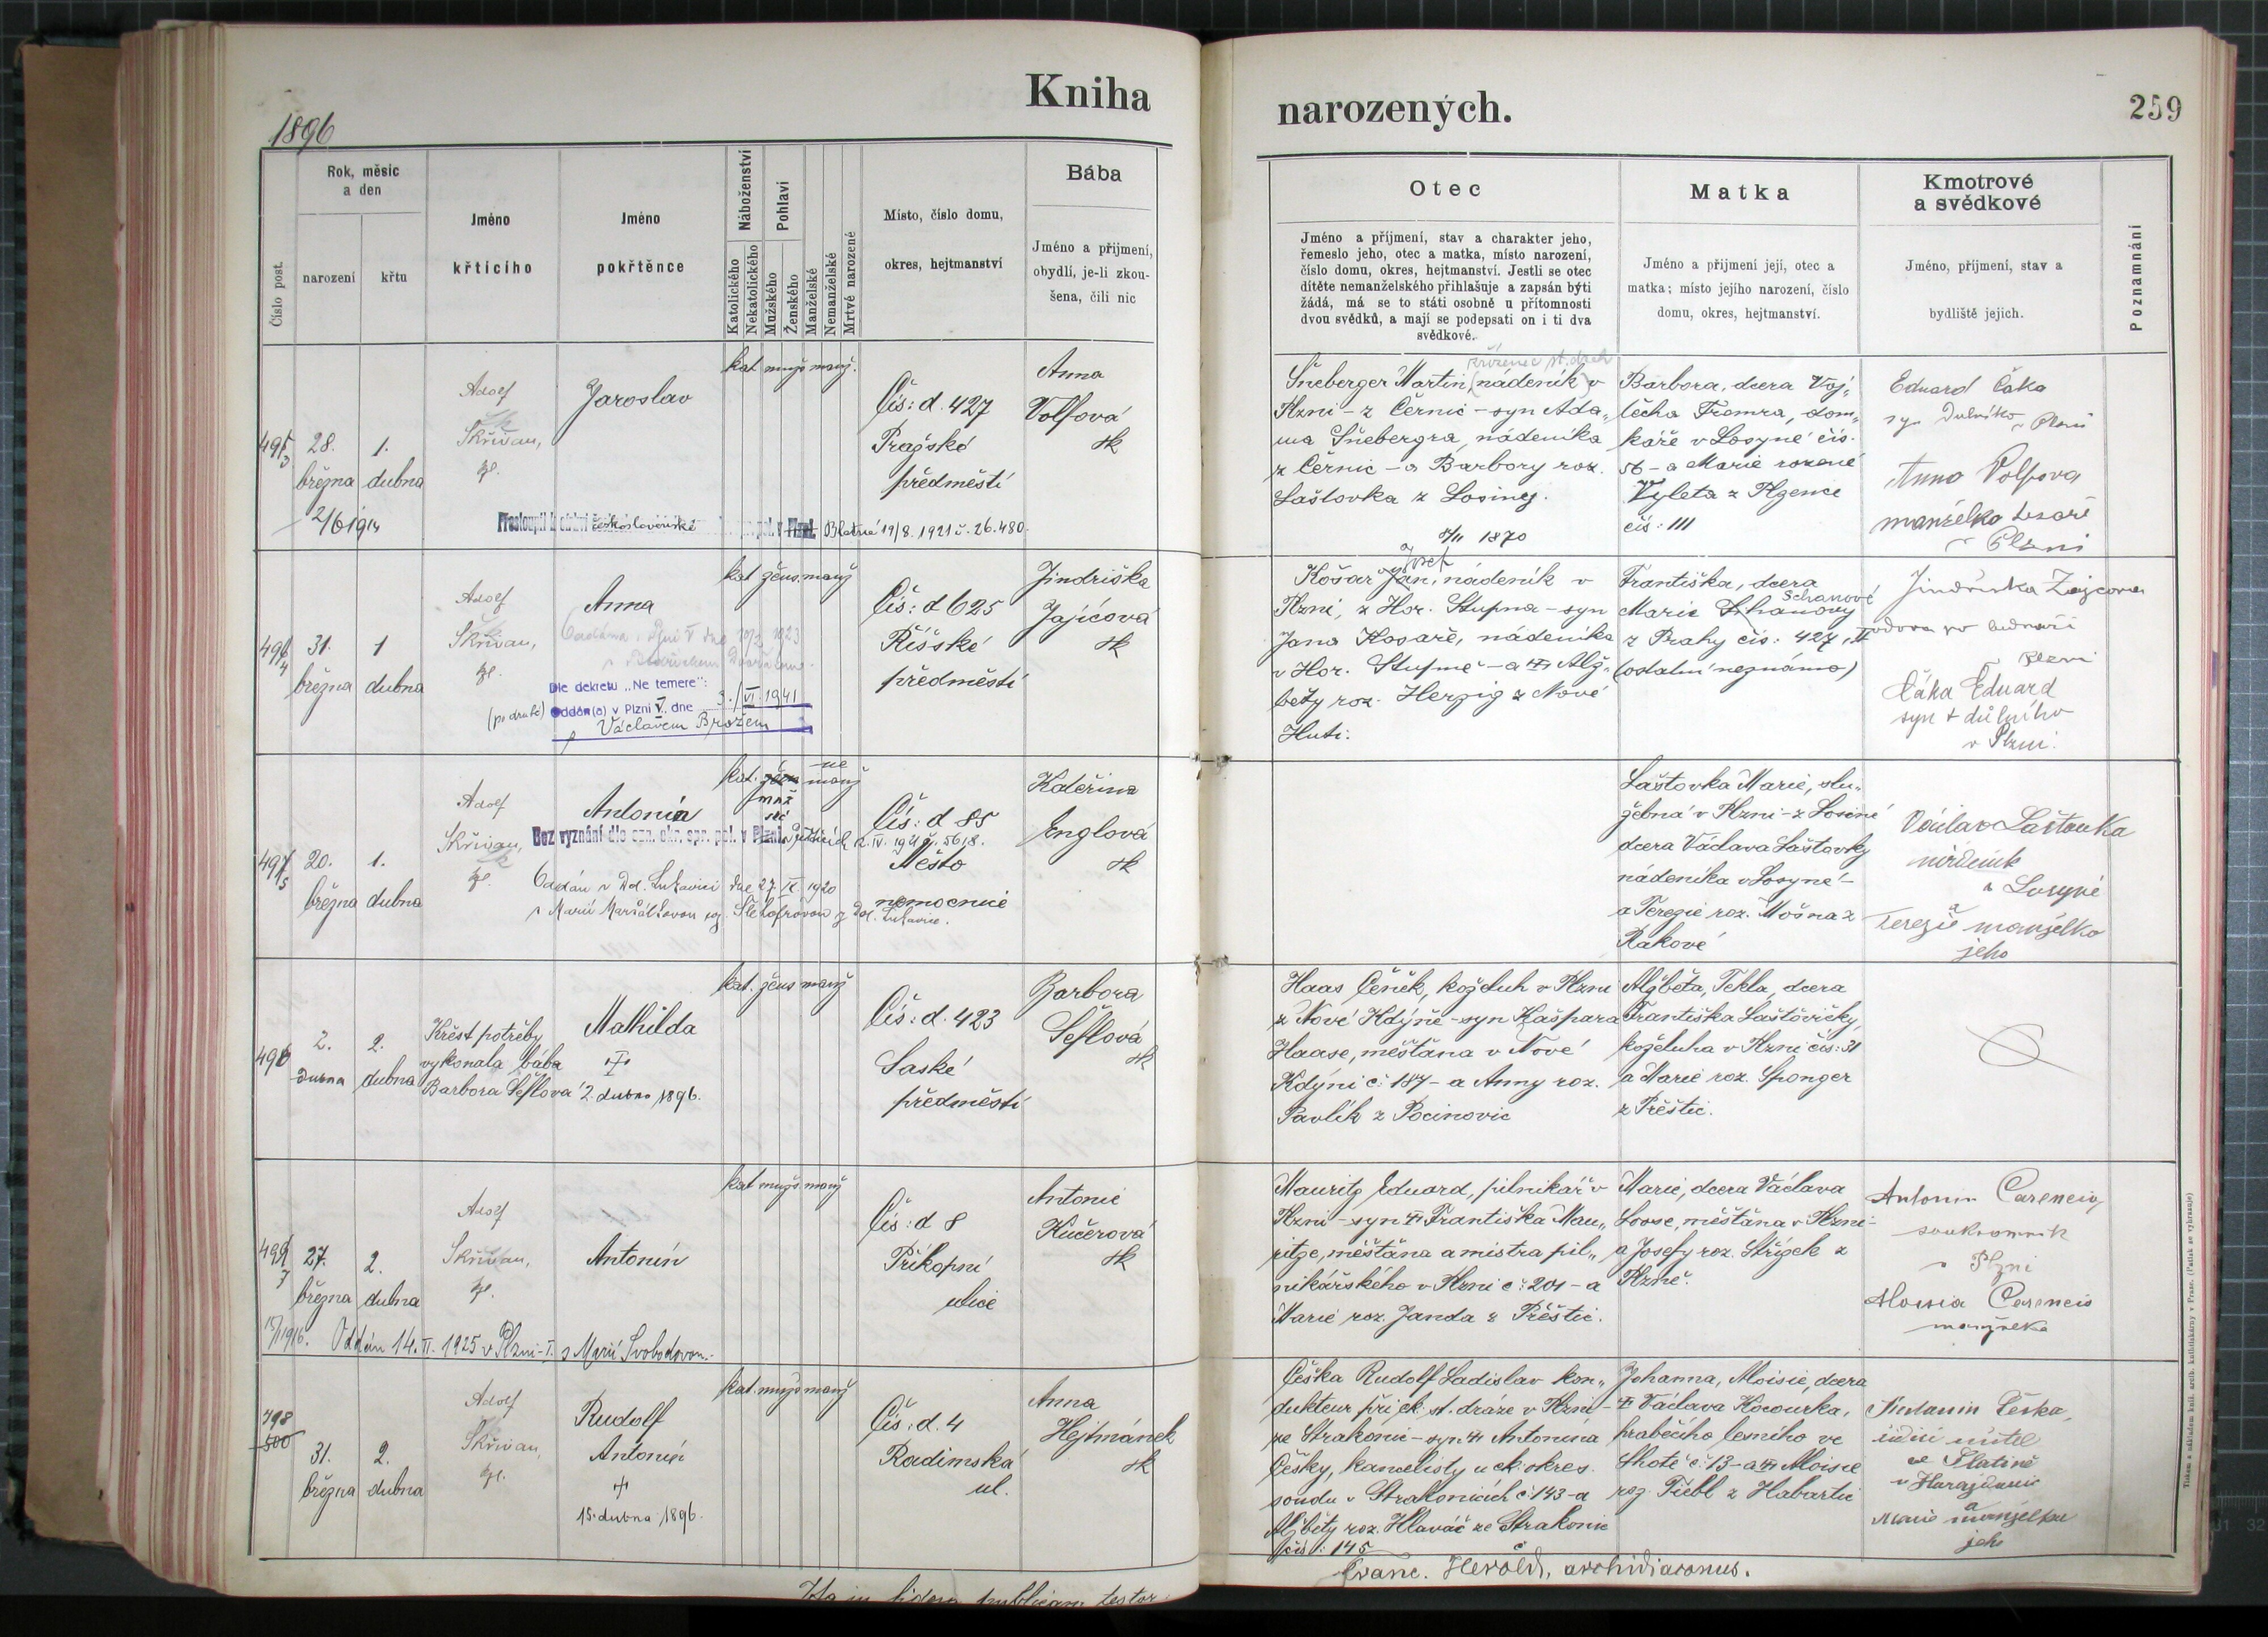 1896
Kniha
narozených.
259
Číslo post.
Rok, měsíc
a den
narození
křtu
Jméno
křtícího
Jméno
pokřtěnce
Náboženství
Katolického
Nekatolického
Pohlaví
Mužského
Ženského
Manželské
Nemanželské
Mrtvé narozené
Místo, číslo domu,
okres, hejtmanství
Bába
Jméno a příjmení,
obydlí, je-li zkou-
šena, čili nic
Otec
Jméno a příjmení, stav a charakter jeho,
řemeslo jeho, otec a matka, místo narození,
číslo domu, okres, hejtmanství. Jestli se otec
dítěte nemanželského přihlašuje a zapsán býti
žádá, má se to státi osobně u přítomnosti
dvou svědků, a mají se podepsati on i ti dva
svědkové.
Matka
Jméno a příjmení její, otec a
matka; místo jejího narození, číslo
domu, okres, hejtmanství.
Kmotrové
a svědkové
Jméno, příjmení, stav a
bydliště jejich.
Poznamnání
28.
března
1.
dubna
2/6 1914
Adolf
Skřivan,
Jaroslav
kat. mužs. manž.
Čís: d. 427
Pražské
předměstí
Anna
Volfová
zk
československé
Blatné 19/8. 1921 č. 26.480.
Šneberger Martin, nádeník v
Plzni - z Černic - syn Ada„
ma Šnebergra, nádeníka
z Černic - a Barbory roz.
Laštovka z Losiney.
Barbora, dcera Voj„
těcha Fremra, dom„
káře v Losyně čís.
56 - a Marie rozené
Vyleta z Plzence
čís: 111
Eduard Čáka
syn
v Plzni
Anna Volfova
manželka
v Plzni
31.
března
1
dubna
Adolf
Skřivan,
Anna
Dle dekretu „Ne temere":
(po druhé) Oddán(a) v Plzni V. dne 3./VI. 1941
s Václavem Brožem
kat. žens. manž
Čís: d 625
Říšské
předměstí
Jindřiška
Zajícová
zk
1870
Josef
Košař Jan, nádeník v
Plzni, z Hor. Stupna - syn
Jana Kosaře, nádeníka
v Hor. Stupně - a Alž„
běty roz. Herzig z Nové
Huti.
Františka, dcera
Schanové
Marie
z Prahy čís: 427, II
(ostatní neznámo)
Jindřiška Zajcova
vdova po
v Plzni
Čáka Eduard
syn † důlního
v Plzni.
20.
března
1.
dubna
Adolf
Skřivan,
Antonín
Bez vyznání dle ozn. okr. spr. pol. v Plzni
Oddán v Dol. Lukavici dne 27. IX. 1920
s Marií
z Dol. Lukavice.
kat. manž
ne
muž
Čís: d 85
Město
nemocnice
Kateřina
Englová
zk
Laštovka Marie, slu„
žebná v Plzni - z Losiné
dcera Václava Laštovky
nádeníka v Losyně -
a Terezie roz. Mošna z
Rakové
Václav Laštovka
nádeník
v Losyně
a
Terezie manželka
jeho
2.
dubna
2.
dubna
Křest potřeby
vykonala bába
Barbora Šeflová
Mathilda
†
2. dubna 1896.
kat. žens manž
Čís: d. 423
Saské
předměstí
Barbora
Šeflová
zk
Haas Čeněk, koželuh v Plzni
z Nové Kdýně - syn Kašpara
Haase, měšťana v Nové
Kdýni č: 187 - a Anny roz.
Pavlík z Pocinovic
Alžběta, Tekla, dcera
Františka Laštovičky,
koželuha v Plzni čís: 31
a Marie roz. Sponger
z Přeštic.
27.
března
2.
dubna
Adolf
Skřivan,
Antonín
Oddán 14. II. 1925 v Plzni - I. s Marií Svobodovou.
kat mužs. manž
Čís: d 8
Příkopní
ulice
Antonie
Kučerová
zk
Mauritz Eduard, pilnikář v
Plzni - syn Františka Mau„
ritze, měšťana a mistra pil„
nikářského v Plzni č: 201 - a
Marie roz. Janda z Přeštic.
Marie, dcera Václava
Loose, měšťana v Plzni -
a Josefy roz. Střížek z
Plzně.
Antonin
soukromník
v Plzni
manželka
498
500
31.
března
2.
dubna
Adolf
Skřivan,
Rudolf
Antonín
†
15. dubna 1896.
kat. mužs manž
Čís: d. 4
Radimská
ul.
Anna
Hejtmánek
zk
Češka Rudolf Ladislav kon„
dukteur při ck. st. dráze v Plzni -
ze Strakonic - syn Antonína
Češky, kancelisty u ck. okres.
soudu v Strakonicích č: 143 - a
Alžběty roz. Hlaváč ze Strakonic
čís: 145
Johanna, Aloisie, dcera
Václava Kocourka,
hraběcího lesního ve
Lhotě č: 13 - a Aloisie
roz. Tiebl z Habartic
Češka,
řídící učitel
ve Slatině
a
Marie manželka
jeho
Ita in fidem publicam testor
Franc. Herold, archidiaconus.